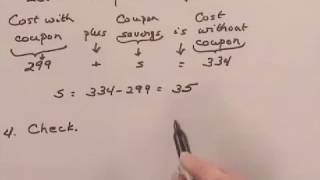 Cost with Coupon Cost
coupon plus savings is without
coupon
299 + s = 334
s = 334 - 299 = 35
4. Check.